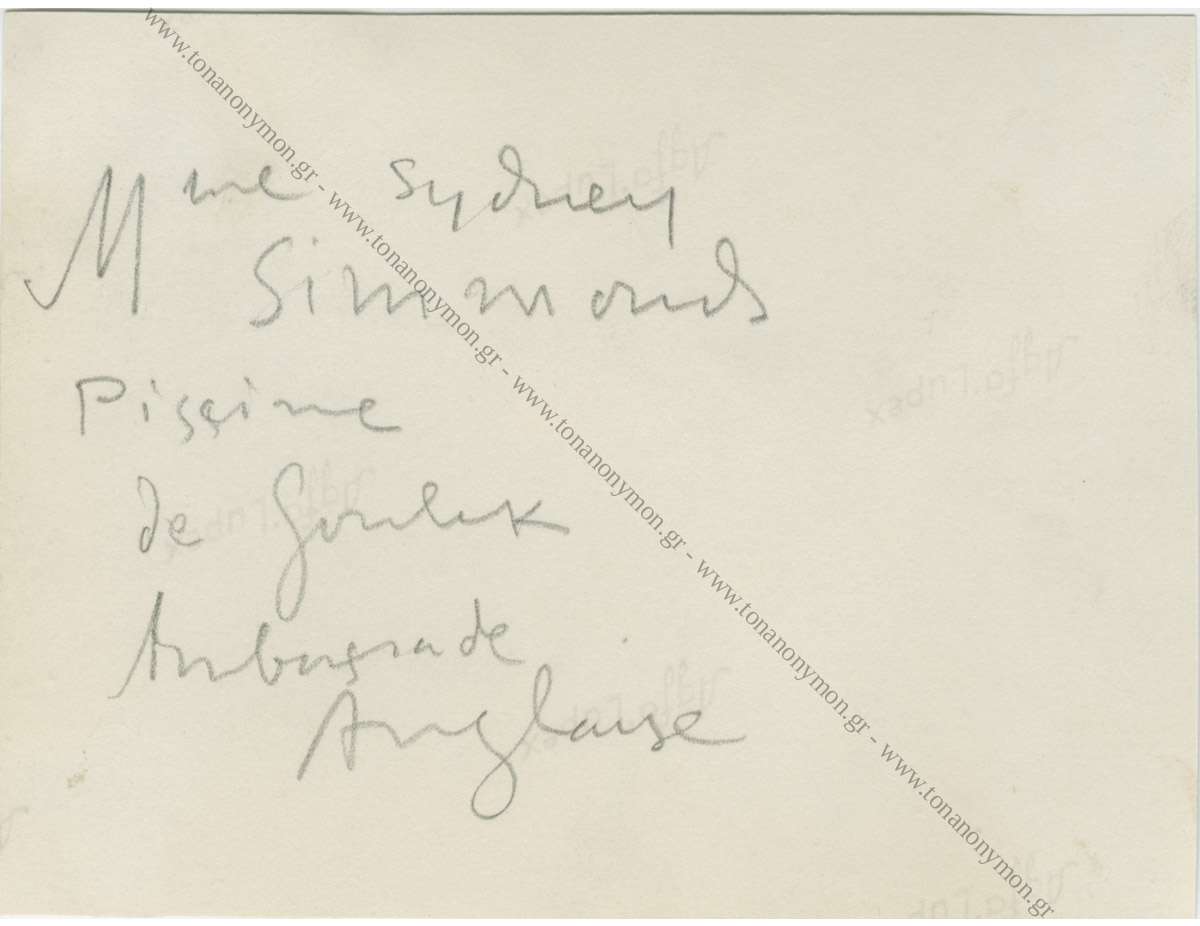 Mme Sydney
Simmonds
Piscine
de Goulek
Ambassade
Anglaise
www.tonanonymon.gr - www.tonanonymon.gr - www.tonanonymon.gr - www.tonanonymon.gr - www.tonanonymon.gr